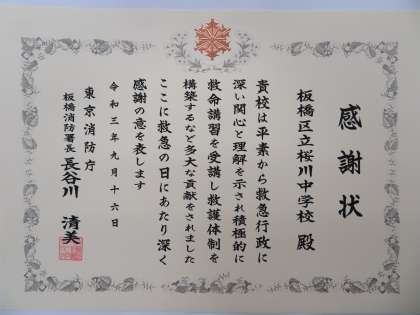 感謝状
板橋区立桜川中学校 殿
貴校は平素から救急行政に
深い関心と理解を示され積極的に
救命講習を受講し救護体制を
構築するなど多大な貢献をされました
ここに救急の日にあたり深く
感謝の意を表します
令和三年九月十六日
東京消防庁
板橋消防署長 長谷川 清美